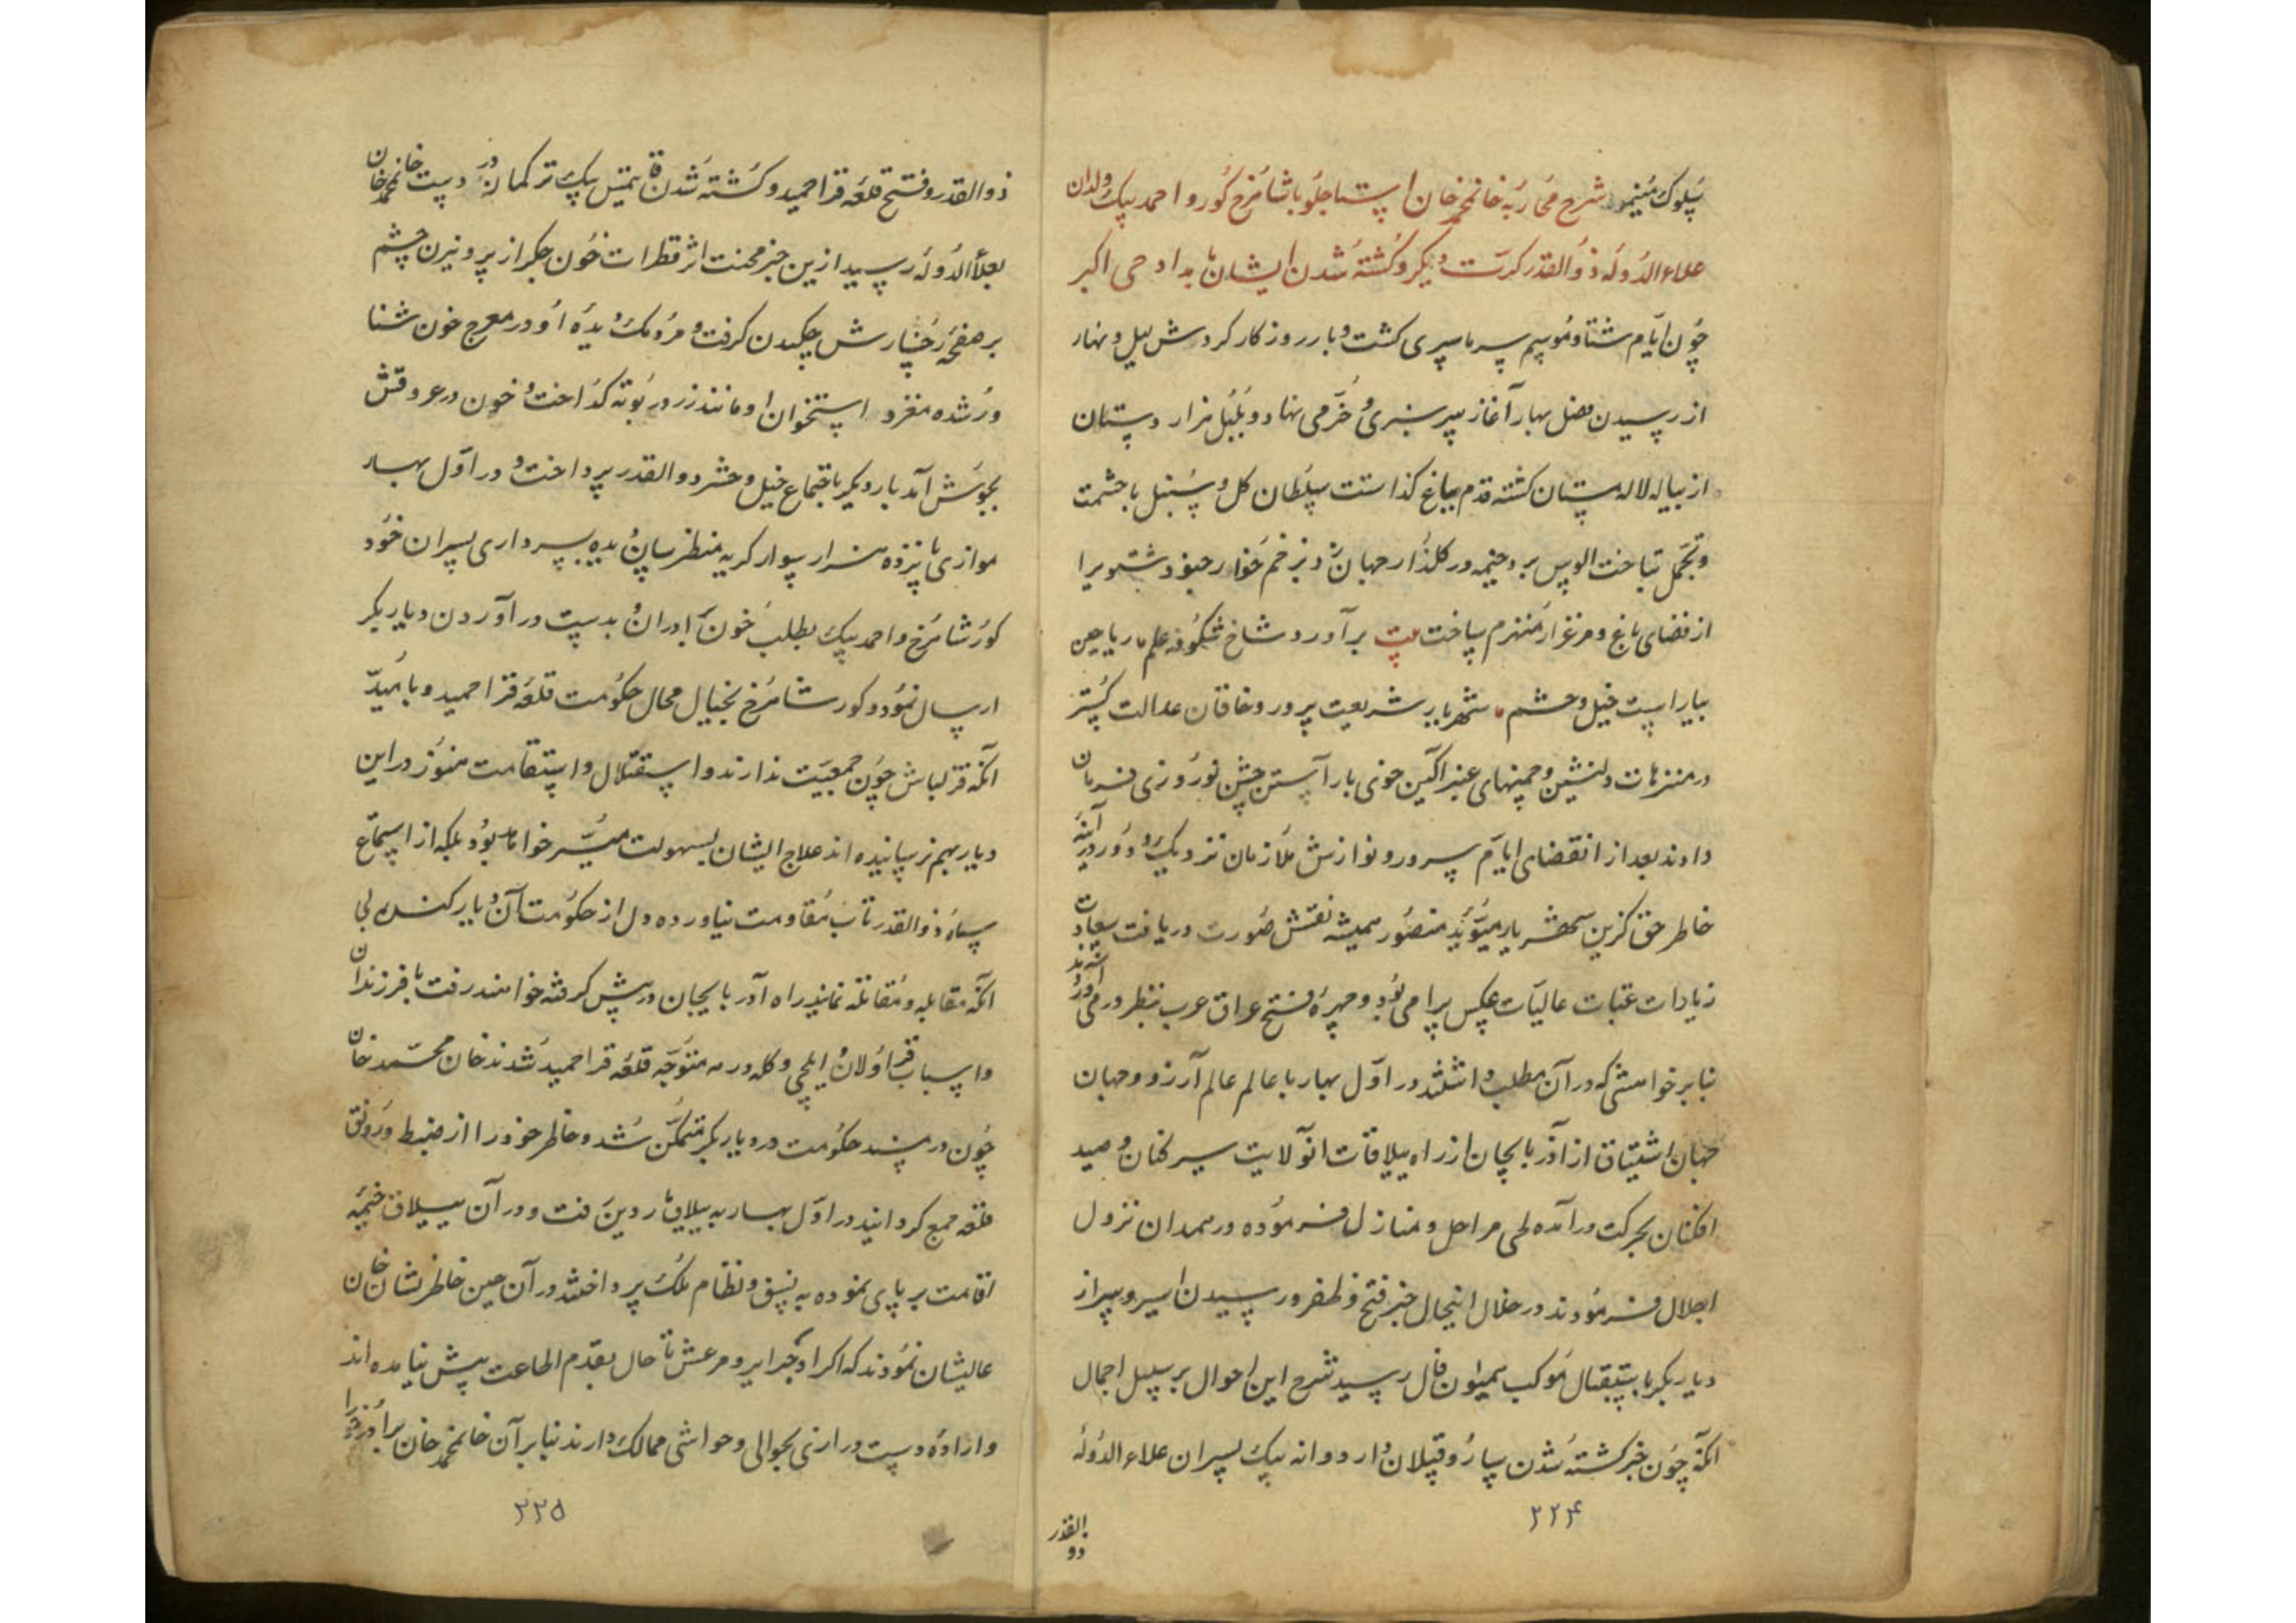 سلوک مینمود شرح محاربه خانمحمد خان استاجلو با شاهرخ کور و احمد بیک ولدان
علاء الدوله ذوالقدر کرت دیگر و کشته شدن ایشان با مداد حی اکبر
چون ایام شتا و موسم سرما سپری کشت و بار روزکار کردش لیل و نهار
از رسیدن فصل بهار آغاز سرسبزی و خرمی نهاد و بلبل هزار دستان
از پیاله لاله مستان کشته قدم بباغ کذاشت سلطان کل و سنبل با حشمت
و تجمل بتاخت الوس برد خیمه در کلذار جهان زد بزخم خار جنود شتویرا
از فضای باغ و مرغزار منهزم ساخت بیت برآورد شاخ شکوفه علم ریاحین
بیاراست خیل و حشم شهریار شریعت پرور و خاقان عدالت کستر
در منزهات دلنشین و چمنهای عنبر اکین خوی بار آستن جشن نوروزی فرمان
دادند بعد از انقضای ایام سرور و نوازش ملازمان نزدیک و دور در آینه
خاطر حق کزین شهریار مؤید منصور همیشه نقش صورت دریافت سعادت
زیادات عتبات عالیات عکس پرا می بود و چهره فتح عراق عرب بنظر در می آوردند
بنابر خواهشی که در آن مطلب داشتند در اول بهار با عالم عالم آرزو و جهان
جهان اشتیاق از آذربایجان از راه ییلاقات انولایت سیر کنان و صید
افکنان بحرکت درآمده طی مراحل و منازل فرموده در همدان نزول
اجلال فرمودند در خلال اینحال خبر فتح و ظفر و رسیدن اسیر و سر از
دیاربکر باستقبال موکب همیون فال رسید شرح این احوال بر سبیل اجمال
انکه چون خبر کشته شدن سارو قپلان و اردوانه بیک پسران علاء الدوله
۲۲۴
ذوالقدر
ذوالقدر و فتح قلعه قراحمید و کشته شدن قایتمس بیک ترکمان در دست خانمحمد خان
بعلأ الدوله رسید ازین خبر محنت اثر قطرات خون جکر از پرویزن چشم
بر صفحه رخسارش چکیدن کرفت و مردمک دیده او در موج خون شنا
ور شده مغز در استخوان او مانند زر در بوته کداخت و خون در عروقش
بجوش آمد بار دیکر باجتماع خیل و حشر ذوالقدر پرداخت و در اول بهار
موازی پانزده هزار سوار کریه منظر سان دیده بسرداری پسران خود
کور شاهرخ و احمد بیک بطلب خون برادران و بدست درآوردن دیاربکر
ارسال نمود و کور شاهرخ بخیال محال حکومت قلعه قراحمید و بامید
انکه قزلباش چون جمعیت ندارند و استقلال و استقامت هنوز در این
دیار بهم نرسانیده اند علاج ایشان بسهولت میسر خواهد بود بلکه از استماع
سپاه ذوالقدر تاب مقاومت نیاورده دل از حکومت آن دیار کنده بی
انکه مقابله و مقاتله نمایند راه آذربایجان در پیش کرفته خواهند رفت با فرزندان
و اسباب قراولان و ایلچی و کله و رمه متوجه قلعه قراحمید شدند خان محمد خان
چون در مسند حکومت در دیاربکر متمکن شد و خاطر خود را از ضبط و رونق
قلعه جمع کردانید در اول بهار به ییلاق ماردین رفت و در آن ییلاق خیمه
اقامت بر پای نموده به نسق و نظام ملک پرداختند در آن حین خاطر نشان خان
عالیشان نمودند که اکراد جزایر و مرعش تا حال بقدم اطاعت پیش نیامده اند
و اراده دست درازی بحوالی و حواشی ممالک دارند بنابر آن خانمحمد خان برادر خود را
۲۲۵